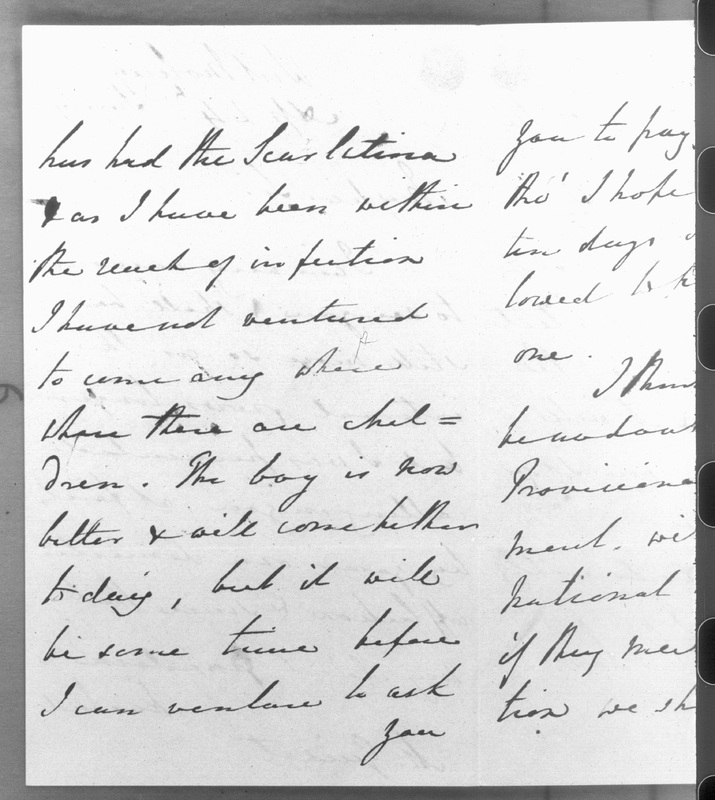 has had the Scarlatina
& as I have been within
the reach of infection
I have not ventured
to come any where
where there are chil=
dren. The boy is now
better & will come hither
to day, but it will
be some time before
I can venture to ask
you
you to pay
tho' I hope
ten days
lowed to
one.
I thin
be no dou
Provisiona
ment. wi
national
if they mee
tion we sh